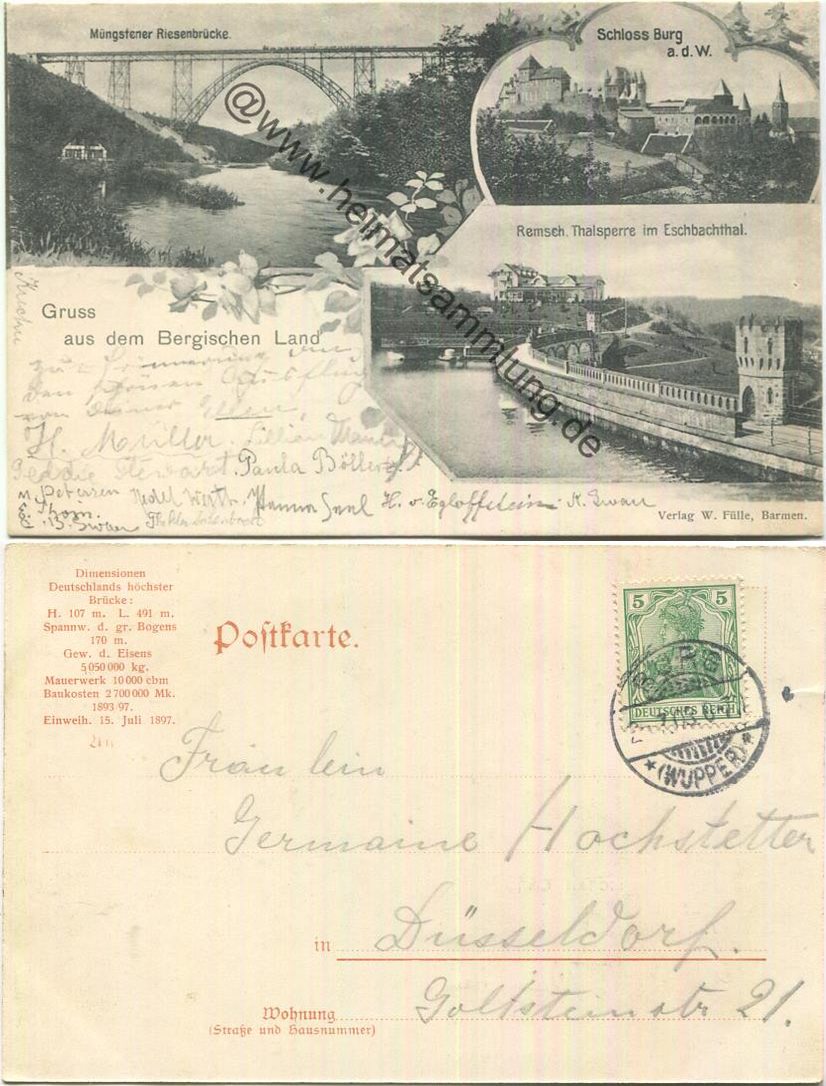 Müngstener Riesenbrücke.
Schloss Burg
a. d. W.
Remsch. Thalsperre im Eschbachthal.
Gruss
aus dem Bergischen Land
zur Erinnerung an
den schönen Ausflug
von Deiner Ellen.
H. Müller. Lillian
Geddie Stewart. Paula Böllert
Petersen
Thom.
B. Swan
Hanna Saal H. v. Egloffstein K. Swan
Verlag W. Fülle, Barmen.
@www.heimatsammlung.de
Dimensionen
Deutschlands höchster
Brücke:
H. 107 m. L. 491 m.
Spannw. d. gr. Bogens
170 m.
Gew. d. Eisens
5 050 000 kg.
Mauerwerk 10 000 cbm
Baukosten 2 700 000 Mk.
1893 97.
Einweih. 15. Juli 1897.
Postkarte.
5 5
DEUTSCHES REICH
BURG
(WUPPER)
An
Fräulein
Germaine Hochstetter
in Düsseldorf.
Wohnung Goltsteinstr 21.
(Straße und Hausnummer)